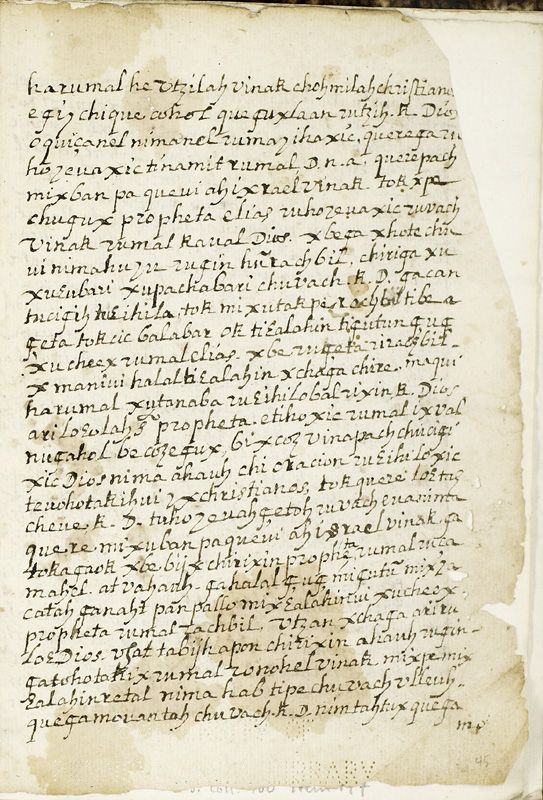 harumal he vtzilah vinak chohmilah christiano
egiz chique cohol queguxlaan rutzih. k. Dios
oquiçanel nimanel rumazihaxic, querega ru
hozevaxic tinamit rumal D. n. a. querepach
mixban pa quevi ahixrael vinak tok xpe
chugux propheta elias ruhozevaxic ruvach
vinak rumal kaval Dios. xbega xhote chu
vi numahuyu rugin hu rachbil, chiriga xu
xuEubari xupachabari chuvach. k. D. gacan
tok mixutak pe rachbil tibe a
geta tokcic balabar ok tiEalahin tigutun gug
xucheex rumal elias. xbe rugeta rirachbil
x manivi halal tiEalahin xchaga chire, maqui
harumal xutanaba ruEihilobal rixin k. Dios
ari loEolah propheta. etihoxic rumal ixval
nugahol be cozegux, bixcoz vinapach chucigi
xic Dios nima ahauh chi oracion ruEihiloxic
tevohotakihuiz xchristianos, tok quere loEtas
cheve k. D. tuhozevah getoh ruvach evasunta
quere mixuban paquevi ahixrael vinak, ga
tokagaok xbe bix chirixin propheta rumal rira
mahel. at vahauh. gahalal gug migutu mixza
catah ganaht pan pallo mixEalahinvi xucheex
propheta rumal rachbil, vtzan xchaga ariru
loEDios vhat tabijkapon chirixin ahauh rugin
gatohotatix rumal ronohel vinak, mixpe mix
Ealahin retal nima hab tipe chuvach vlleuh.
quegamovantah chuvach. k. D. nimtahtux quega
45